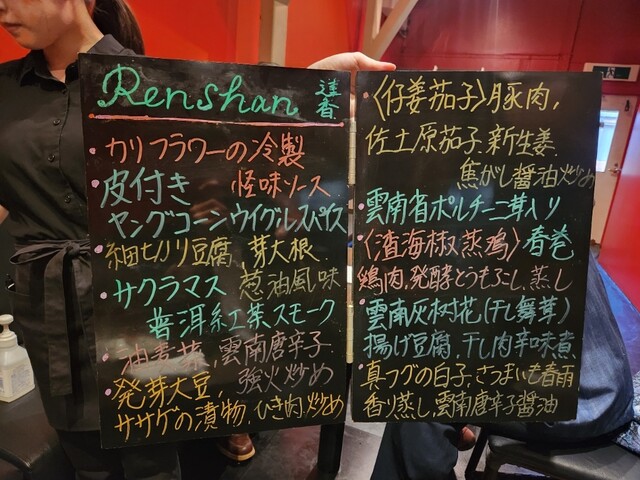 Renshan 蓮香
・カリフラワーの冷製
怪味ソース
・皮付き
ヤングコーンウイグルスパイス
・細切り豆腐、芽大根、
葱油風味
・サクラマス
普洱紅茶スモーク
・油麦菜、雲南唐辛子
強火炒め
・発芽大豆、
ササゲの漬物、ひき肉、炒め
・〈仔姜茄子〉豚肉、
佐土原茄子、新生姜、
焦がし醤油炒め
・雲南省ポルチーニ茸入り
春巻
・〈渣海椒蒸鸡〉
鶏肉、発酵とうもろこし、蒸し
・雲南灰树花(干し舞茸)
揚げ豆腐、干し肉辛味煮
・真フグの白子、さつまいも春雨
香り蒸し、雲南唐辛子醤油